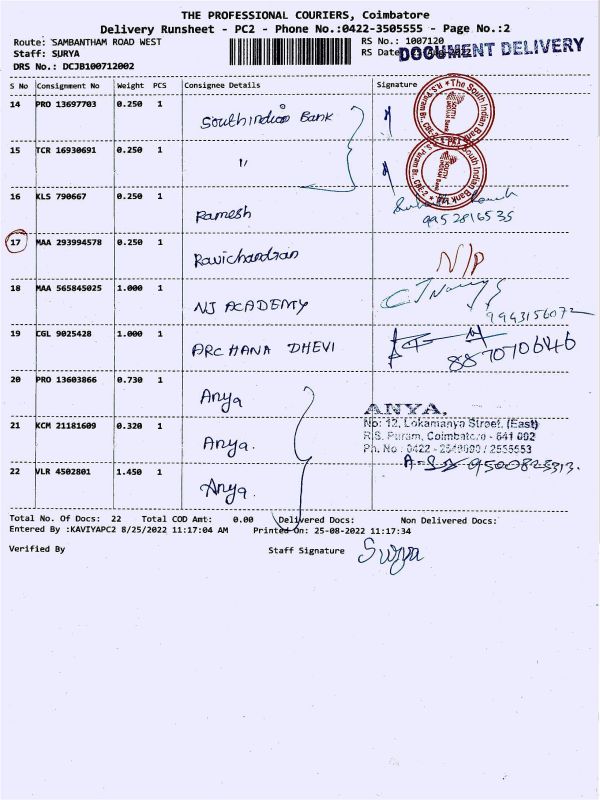 THE PROFESSIONAL COURIERS, Coimbatore
Delivery Runsheet - PC2 - Phone No.:0422-3505555 - Page No.:2
Route: SAMBANTHAM ROAD WEST
RS No.: 1007120
Staff: SURYA
RS Date:
DOCUMENT DELIVERY
DRS No.: DCJB100712002
S No Consignment No Weight PCS Consignee Details Signature
14 PRO 13697703 0.250 1 South Indian Bank
The South Indian Bank
15 TCR 16930691 0.250 1 "
The South Indian Bank
16 KLS 790667 0.250 1 Ramesh
9952816535
17 MAA 293994578 0.250 1 Ravichandran N/P
18 MAA 565845025 1.000 1 NJ ACADEMY
9943156072
19 CGL 9025428 1.000 1 ARCHANA DHEVI
8870706646
20 PRO 13603866 0.730 1 Anya
ANYA.
No: 12, Lokamanya Street, (East)
21 KCM 21181609 0.320 1 Anya.
R.S. Puram, Coimbatore - 641 002
Ph. No : 0422 - / 2555553
22 VLR 4502801 1.450 1 Anya.
Total No. Of Docs: 22 Total COD Amt: 0.00 Delivered Docs: Non Delivered Docs:
Entered By :KAVIYAPC2 8/25/2022 11:17:04 AM Printed On: 25-08-2022 11:17:34
Verified By Staff Signature Surya